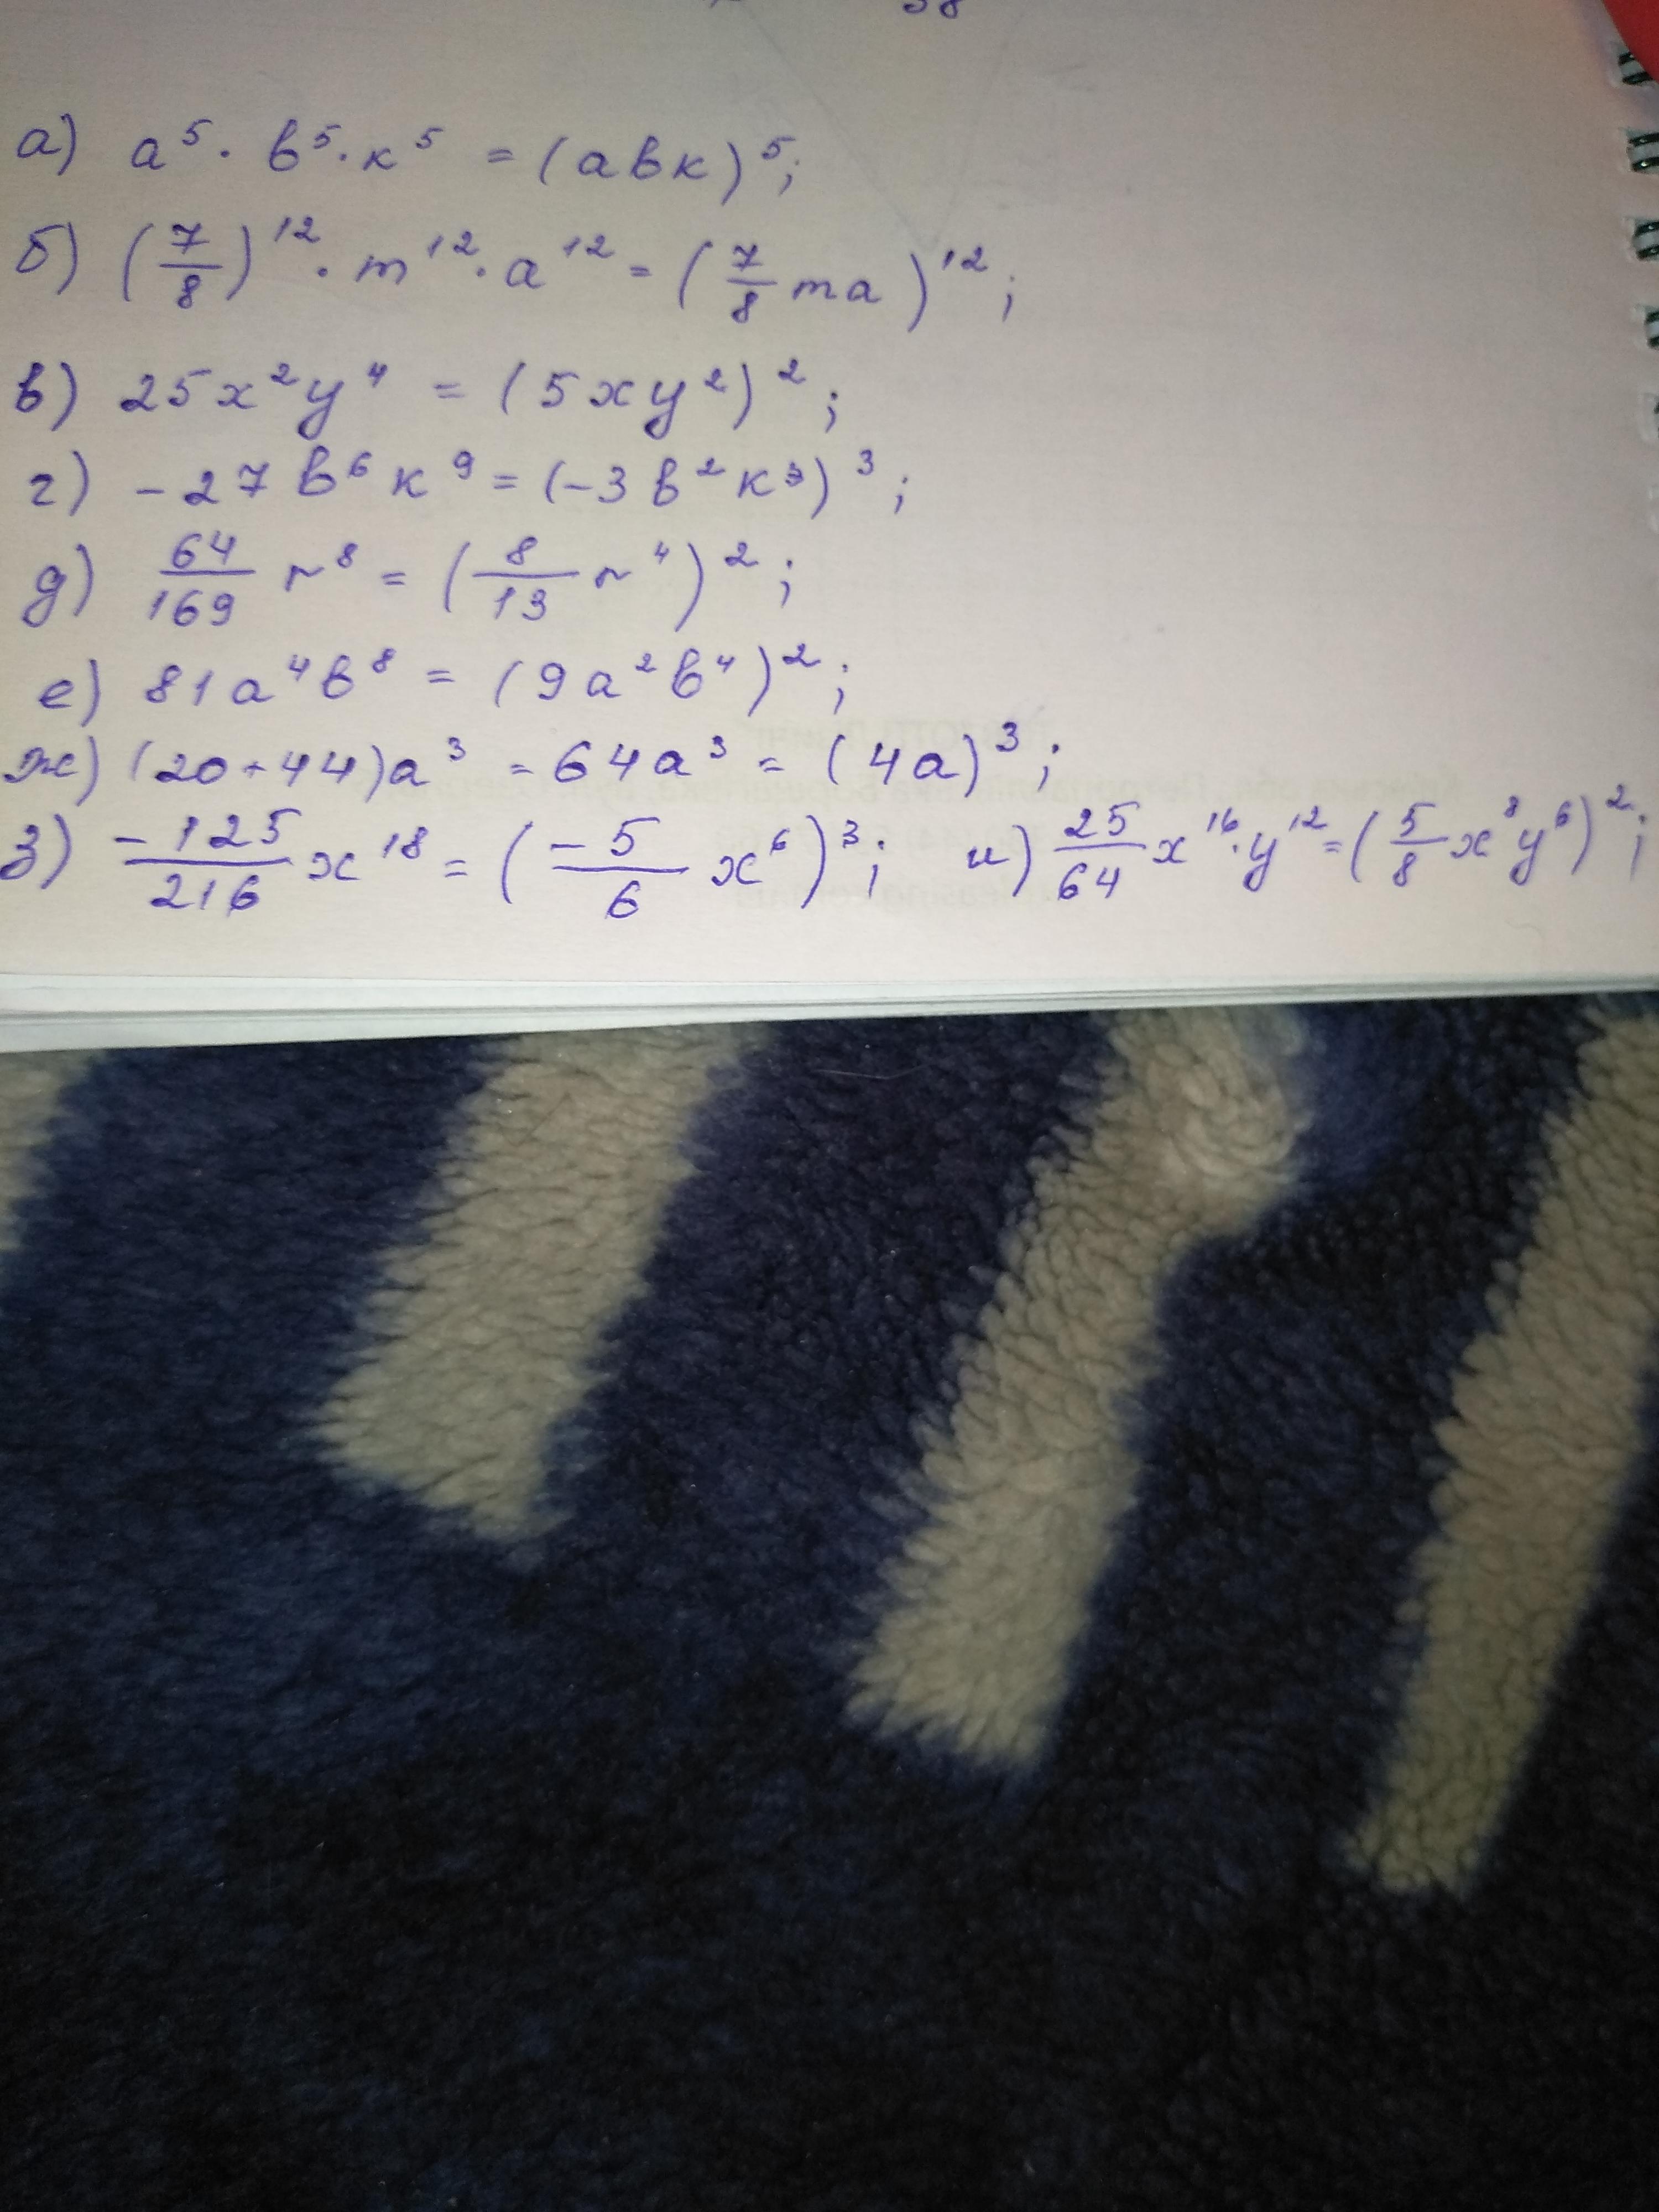 38
а) a⁵ · b⁵ · к⁵ = (abк)⁵;
б) (7/8)¹² · m¹² · a¹² = (7/8 ma)¹²;
в) 25x²y⁴ = (5xy²)²;
г) -27b⁶к⁹ = (-3b²к³)³;
д) 64/169 r⁸ = (8/13 r⁴)²;
е) 81a⁴b⁸ = (9a²b⁴)²;
ж) (20+44)a³ = 64a³ = (4a)³;
з) -125/216 x¹⁸ = (-5/6 x⁶)³; и) 25/64 x¹⁶·y¹² = (5/8 x⁸y⁶)²;